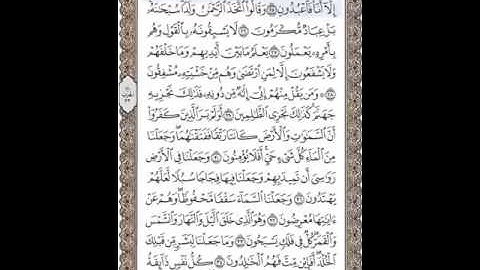 إِلَّا أَنَا۠ فَٱعۡبُدُونِ ٢٥ وَقَالُواْ ٱتَّخَذَ ٱلرَّحۡمَٰنُ وَلَدٗاۗ سُبۡحَٰنَهُۥۚ
بَلۡ عِبَادٞ مُّكۡرَمُونَ ٢٦ لَا يَسۡبِقُونَهُۥ بِٱلۡقَوۡلِ وَهُم
بِأَمۡرِهِۦ يَعۡمَلُونَ ٢٧ يَعۡلَمُ مَا بَيۡنَ أَيۡدِيهِمۡ وَمَا خَلۡفَهُمۡ
وَلَا يَشۡفَعُونَ إِلَّا لِمَنِ ٱرۡتَضَىٰ وَهُم مِّنۡ خَشۡيَتِهِۦ مُشۡفِقُونَ
٢٨ ۞ وَمَن يَقُلۡ مِنۡهُمۡ إِنِّيٓ إِلَٰهٞ مِّن دُونِهِۦ فَذَٰلِكَ نَجۡزِيهِ
جَهَنَّمَۚ كَذَٰلِكَ نَجۡزِي ٱلظَّٰلِمِينَ ٢٩ أَوَلَمۡ يَرَ ٱلَّذِينَ كَفَرُوٓاْ
أَنَّ ٱلسَّمَٰوَٰتِ وَٱلۡأَرۡضَ كَانَتَا رَتۡقٗا فَفَتَقۡنَٰهُمَاۖ وَجَعَلۡنَا
مِنَ ٱلۡمَآءِ كُلَّ شَيۡءٍ حَيٍّۚ أَفَلَا يُؤۡمِنُونَ ٣٠ وَجَعَلۡنَا فِي ٱلۡأَرۡضِ
رَوَٰسِيَ أَن تَمِيدَ بِهِمۡ وَجَعَلۡنَا فِيهَا فِجَاجٗا سُبُلٗا لَّعَلَّهُمۡ
يَهۡتَدُونَ ٣١ وَجَعَلۡنَا ٱلسَّمَآءَ سَقۡفٗا مَّحۡفُوظٗاۖ وَهُمۡ عَنۡ
ءَايَٰتِهَا مُعۡرِضُونَ ٣٢ وَهُوَ ٱلَّذِي خَلَقَ ٱلَّيۡلَ وَٱلنَّهَارَ وَٱلشَّمۡسَ
وَٱلۡقَمَرَۖ كُلّٞ فِي فَلَكٖ يَسۡبَحُونَ ٣٣ وَمَا جَعَلۡنَا لِبَشَرٖ مِّن قَبۡلِكَ
ٱلۡخُلۡدَۖ أَفَإِيْن مِّتَّ فَهُمُ ٱلۡخَٰلِدُونَ ٣٤ كُلُّ نَفۡسٖ ذَآئِقَةُ